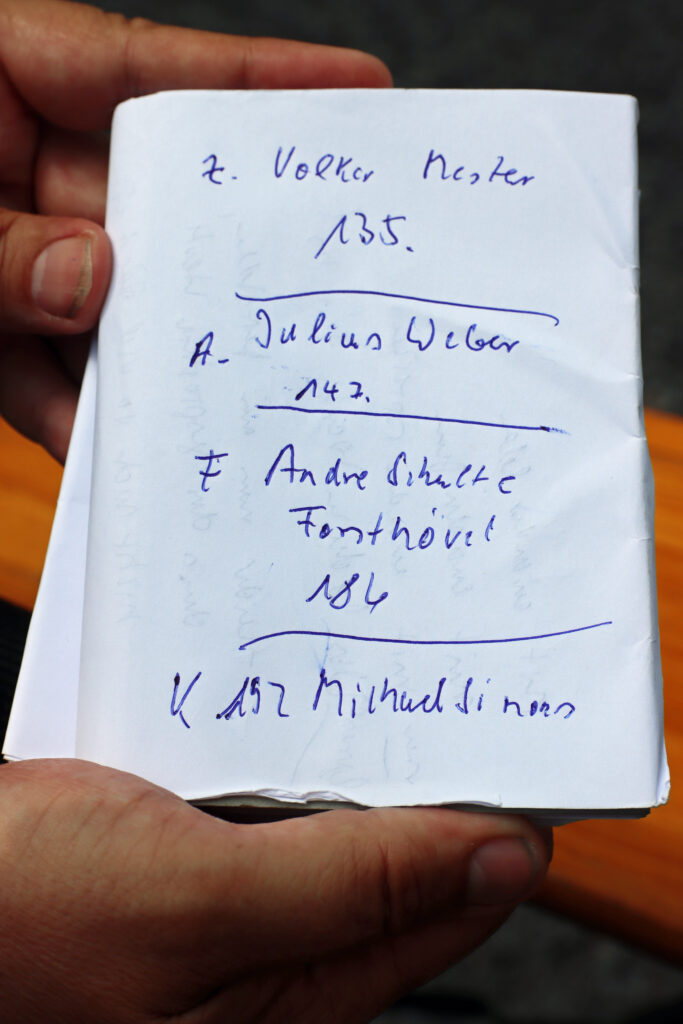 Z. Volker Mester
135.
A. Julius Weber
147.
F Andre Schulte
Forsthövel
184
K 192 Michael Simons